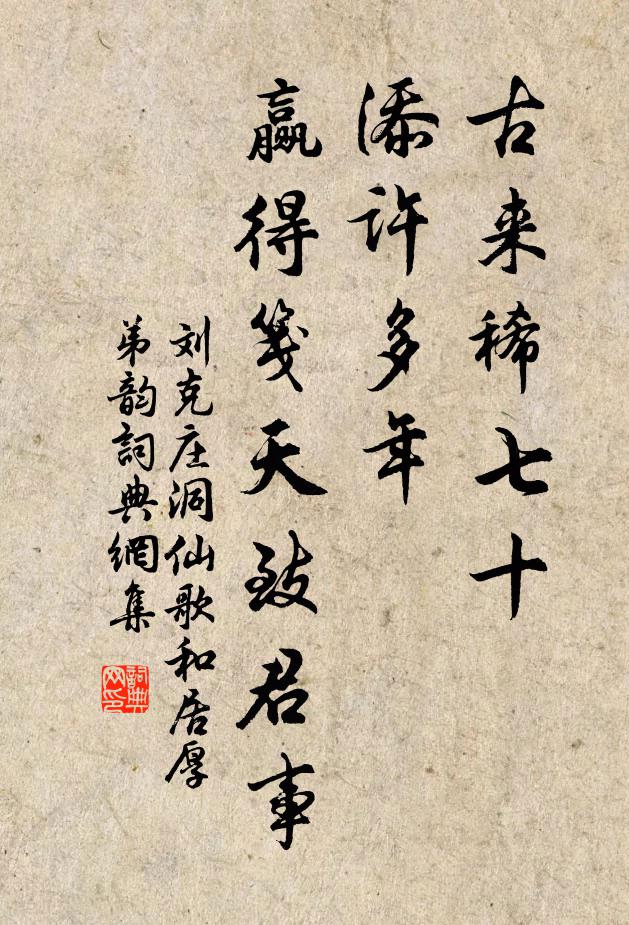 古来稀七十
添许多年
赢得笺天致君事
刘克庄洞仙歌和居厚
弟韵詞典網集
詞典
网印